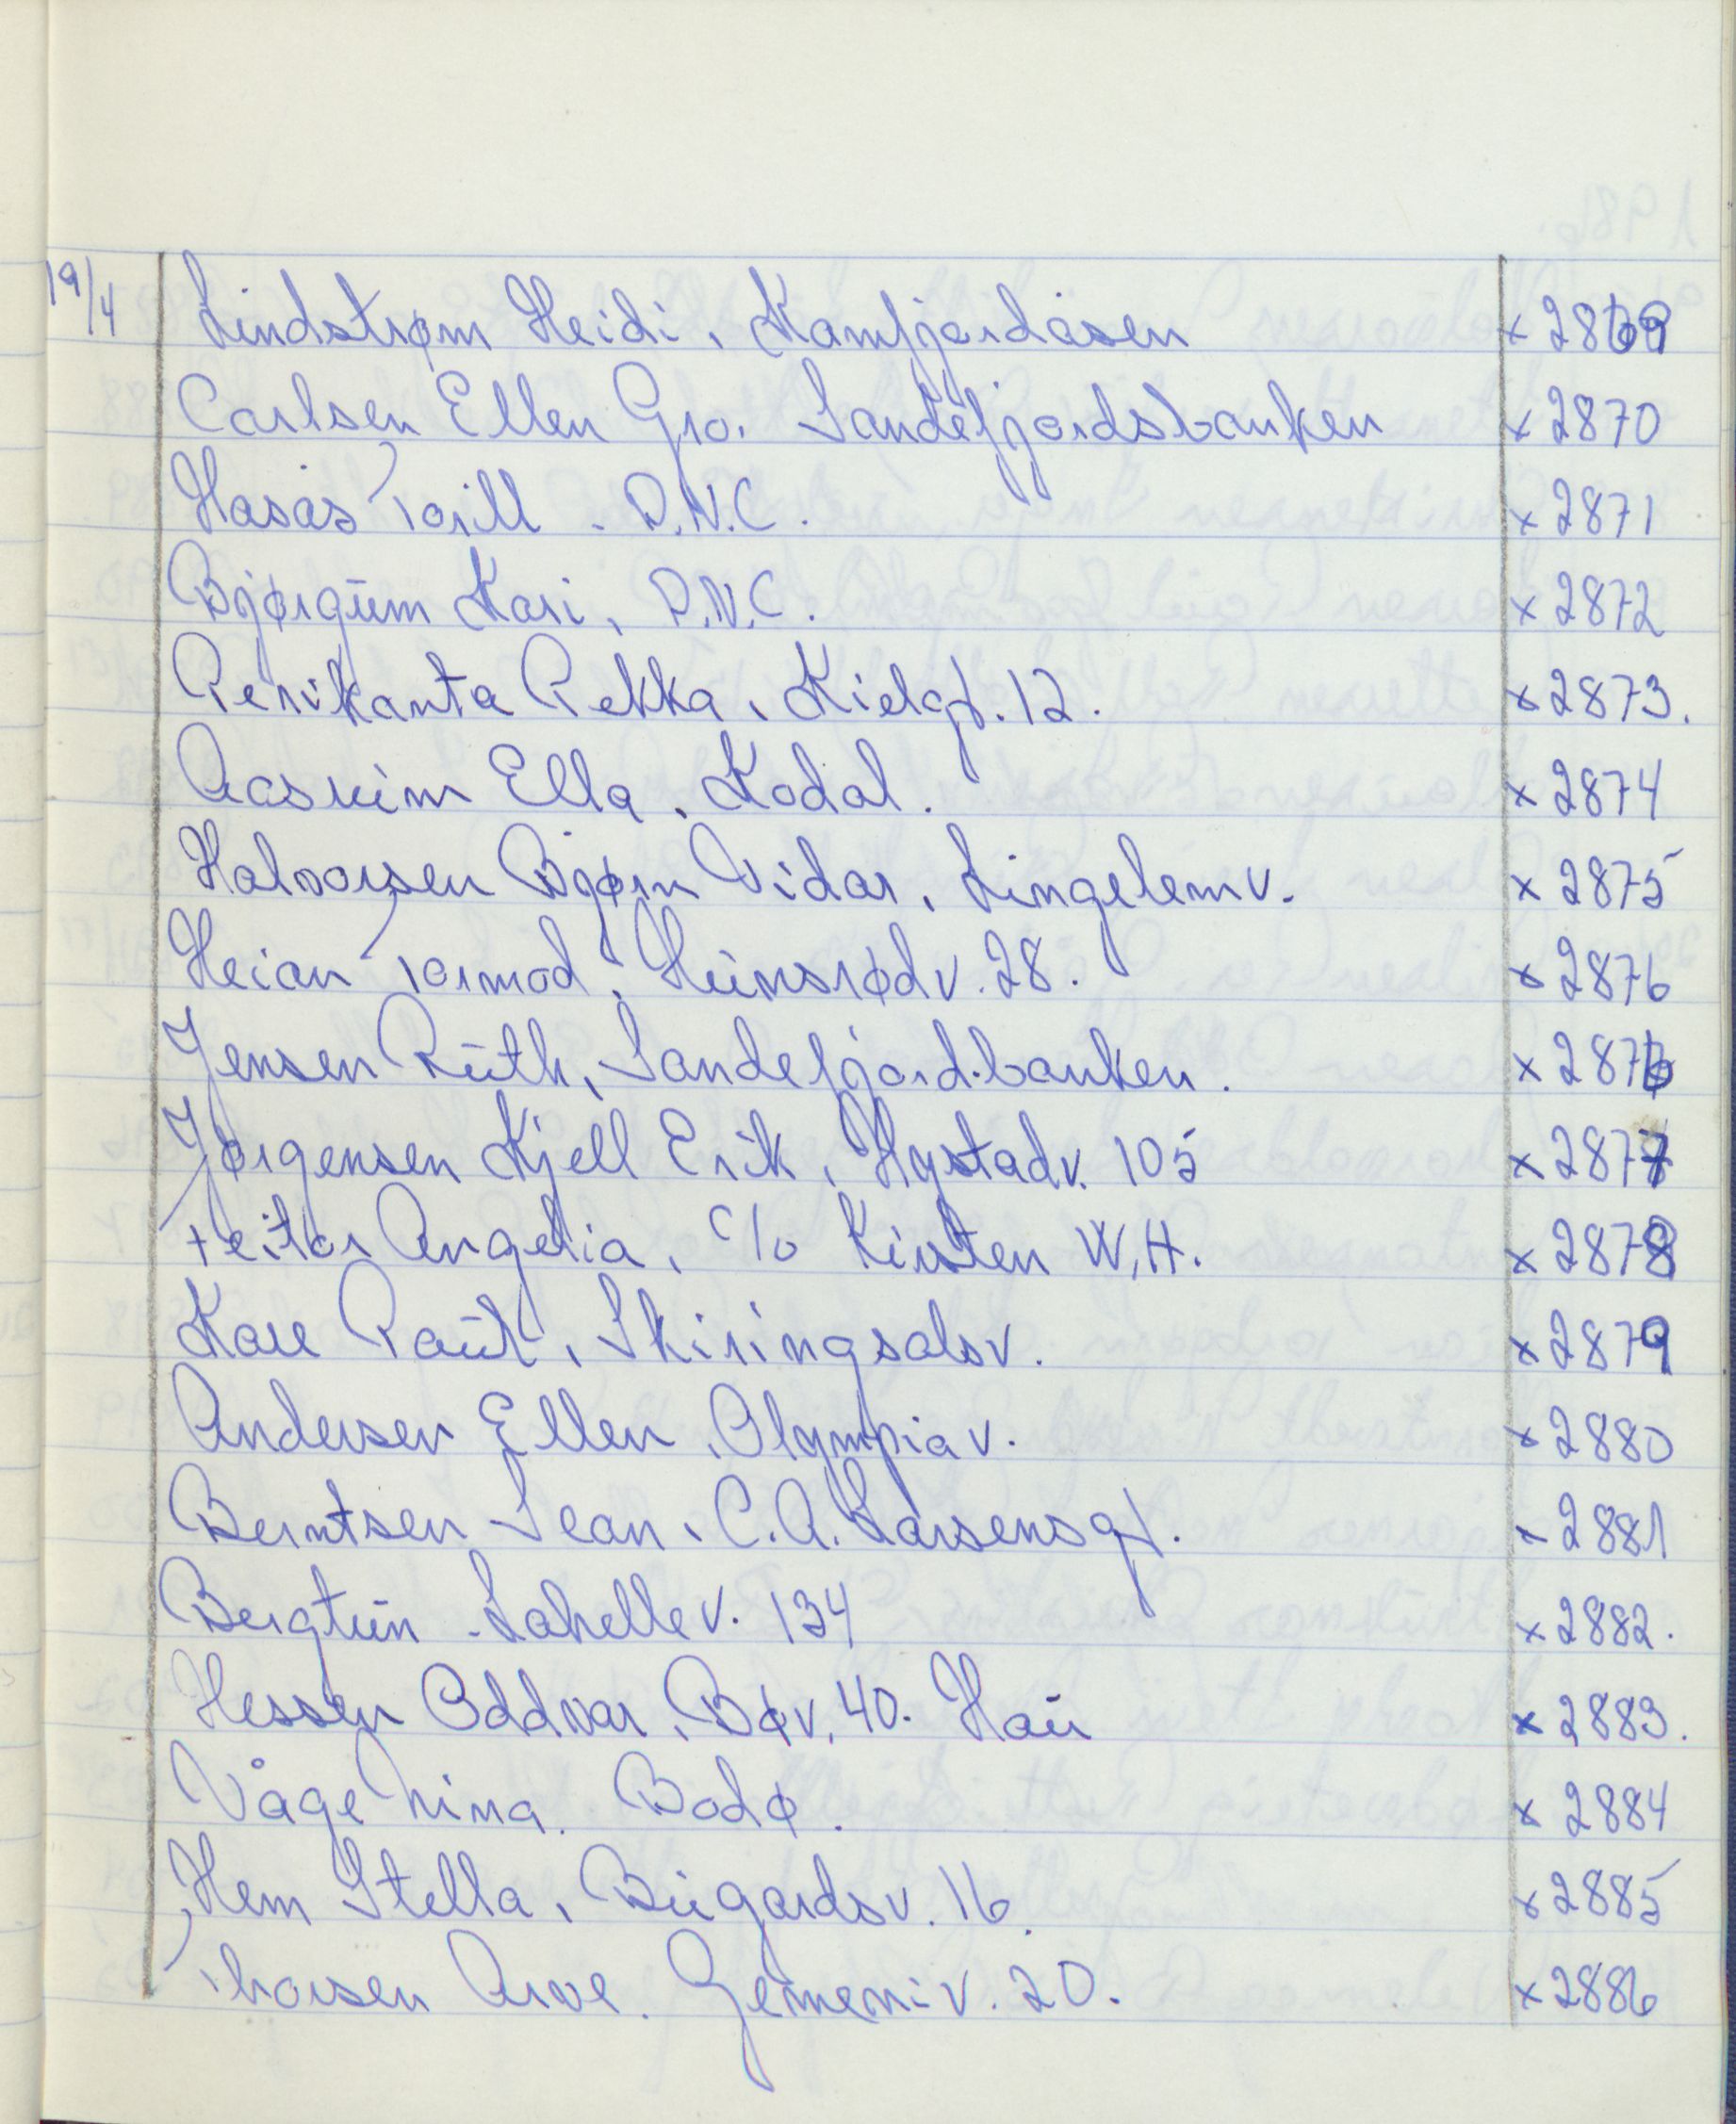 19/4 Lindstrøm Heidi, Kamfjordåsen x 2869
Carlsen Ellen Gro. Sandefjordsbanken x 2870
Hasås Torill - D.N.C. x 2871
Bjørgum Kari, D.N.C. x 2872
Penikanta Pekka, Kielgt. 12. x 2873.
Aasheim Ella, Kodal. x 2874
Halvorsen Bjørn Vidar, Lingelemv. x 2875
Heian Tormod, Heimsrødv. 28. x 2876
Jensen Ruth, Sandefjord.banken. x 2876
Jørgensen Kjell Erik, Hystadv. 105 x 2877
Feitor Angelia, c/o Kirsten W.H. x 2878
Kare Paul, Skiringsalsv. x 2879
Andersen Ellen, Olympiav. x 2880
Berntsen Sean, C.A. Larsensgt. x 2881
Bergtun - Lahellev. 134 x 2882.
Hessen Oddvar, Bøv. 40. Hau x 2883.
Våge Nina. Bodø. x 2884
Hem Stella, Bugardsv. 16. x 2885
Thorsen Arve. Gemeniv. 20. x 2886